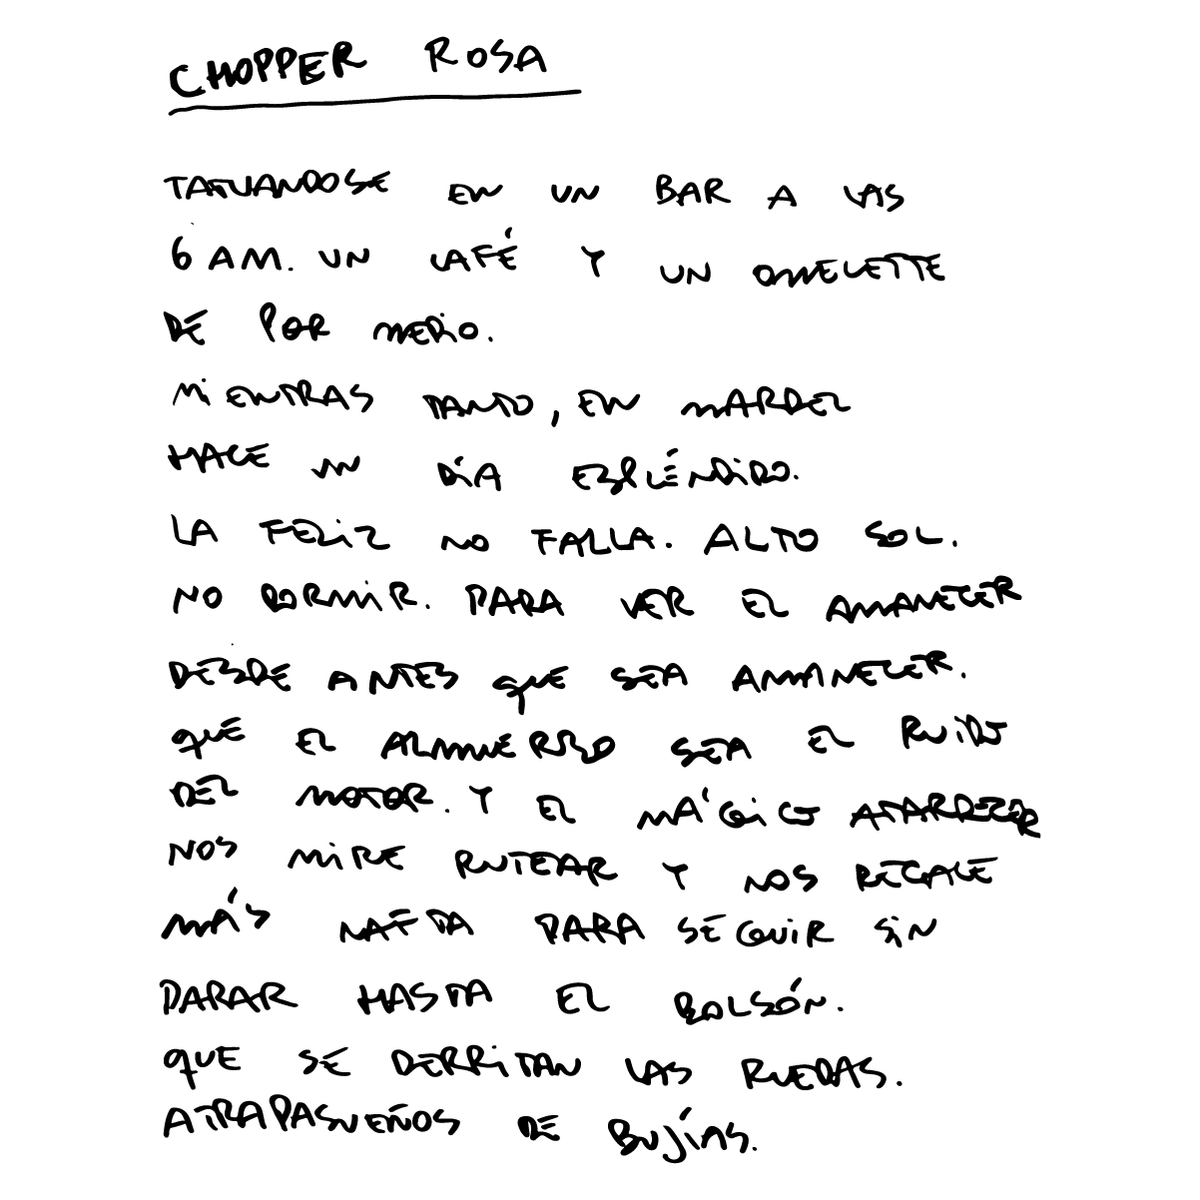 CHOPPER ROSA
TATUANDOSE EN UN BAR A LAS
6 AM. UN CAFÉ Y UN OMELETTE
DE POR MEDIO.
MIENTRAS TANTO, EN MARDEL
HACE UN DÍA ESPLÉNDIDO.
LA FELIZ NO FALLA. ALTO SOL.
NO DORMIR. PARA VER EL AMANECER
DESDE ANTES QUE SEA AMANECER.
QUE EL ALMUERZO SEA EL RUIDO
DEL MOTOR. Y EL MÁGICO ATARDECER
NOS MIRE RUTEAR Y NOS REGALE
MÁS NAFTA PARA SEGUIR SIN
PARAR HASTA EL BOLSÓN.
QUE SE DERRITAN LAS RUEDAS.
ATRAPASUEÑOS DE BUJÍAS.